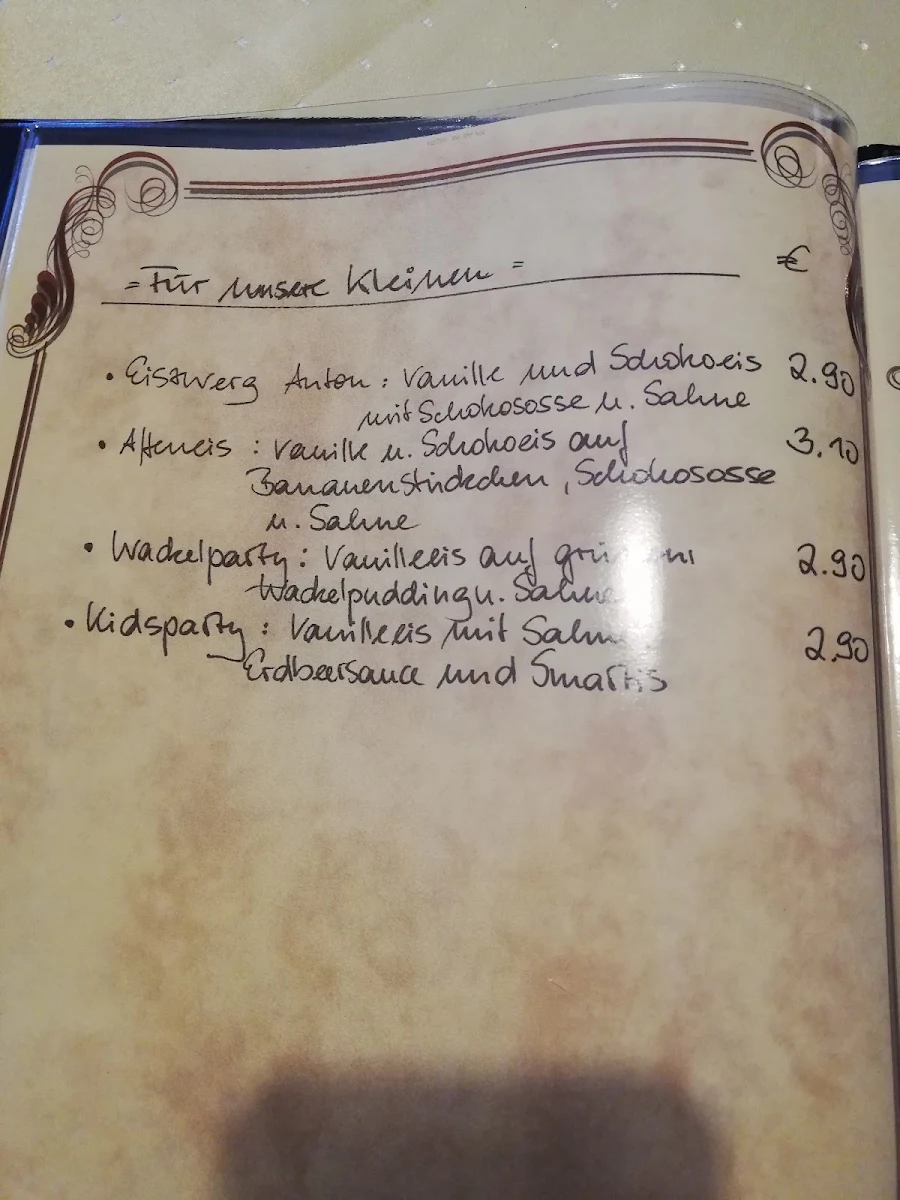 = Für unsere Kleinen = €
• Eiszwerg Anton : Vanille und Schokoeis 2.90
mit Schokososse u. Sahne
• Affeneis : Vanille u. Schokoeis auf 3.10
Bananenstückchen, Schokososse
u. Sahne
• Wackelparty : Vanilleeis auf grünem 2.90
Wackelpudding u. Sahne
• Kidsparty : Vanilleeis mit Sahne 2.90
Erdbeersauce und Smartis